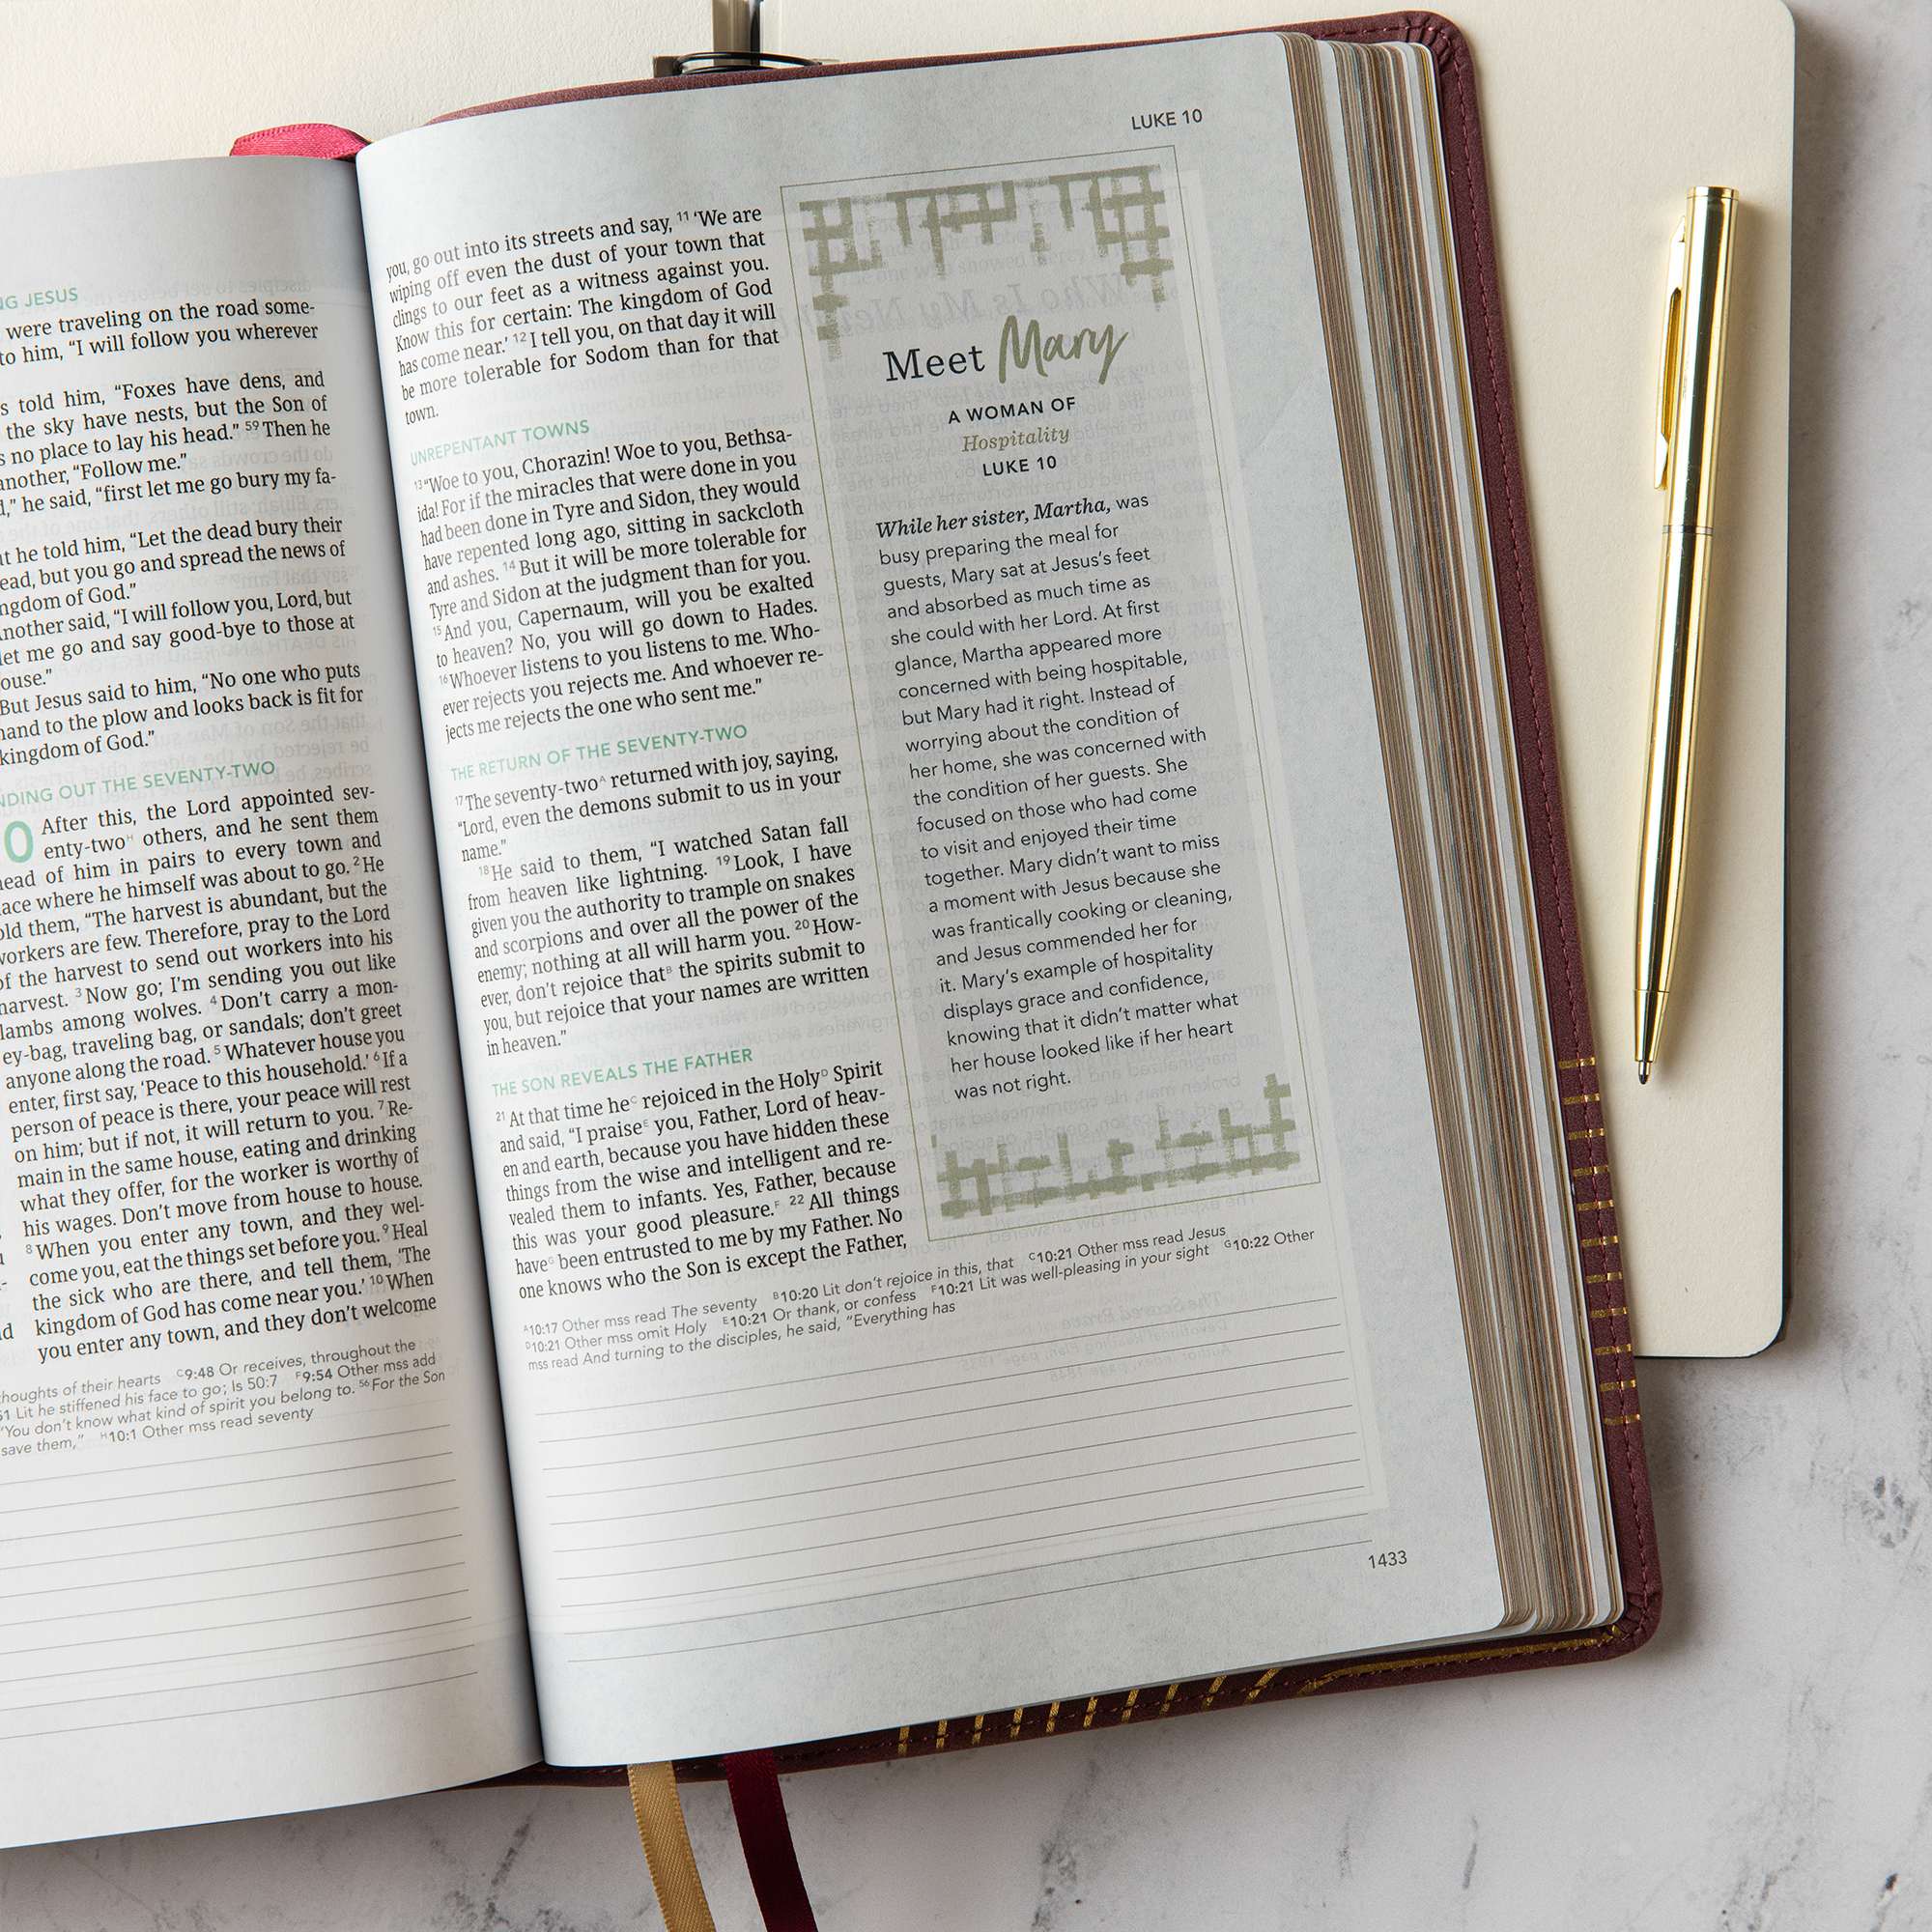 NG JESUS
were traveling on the road some-
to him, “I will follow you wherever
s told him, “Foxes have dens, and
the sky have nests, but the Son of
s no place to lay his head.” 59 Then he
another, “Follow me.”
d,” he said, “first let me go bury my fa-
ut he told him, “Let the dead bury their
ead, but you go and spread the news of
ngdom of God.”
nother said, “I will follow you, Lord, but
let me go and say good-bye to those at
ouse.”
But Jesus said to him, “No one who puts
hand to the plow and looks back is fit for
kingdom of God.”
NDING OUT THE SEVENTY-TWO
0 After this, the Lord appointed sev-
enty-twoH others, and he sent them
head of him in pairs to every town and
lace where he himself was about to go. 2 He
old them, “The harvest is abundant, but the
workers are few. Therefore, pray to the Lord
of the harvest to send out workers into his
harvest. 3 Now go; I’m sending you out like
lambs among wolves. 4 Don’t carry a mon-
ey-bag, traveling bag, or sandals; don’t greet
anyone along the road. 5 Whatever house you
enter, first say, ‘Peace to this household.’ 6 If a
person of peace is there, your peace will rest
on him; but if not, it will return to you. 7 Re-
main in the same house, eating and drinking
what they offer, for the worker is worthy of
his wages. Don’t move from house to house.
8 When you enter any town, and they wel-
come you, eat the things set before you. 9 Heal
the sick who are there, and tell them, ‘The
kingdom of God has come near you.’ 10 When
you enter any town, and they don’t welcome
thoughts of their hearts C9:48 Or receives, throughout the
51 Lit he stiffened his face to go; Is 50:7 F9:54 Other mss add
“You don’t know what kind of spirit you belong to. 56 For the Son
save them,” H10:1 Other mss read seventy
LUKE 10
you, go out into its streets and say, 11 ‘We are
wiping off even the dust of your town that
clings to our feet as a witness against you.
Know this for certain: The kingdom of God
has come near.’ 12 I tell you, on that day it will
be more tolerable for Sodom than for that
town.
UNREPENTANT TOWNS
13 “Woe to you, Chorazin! Woe to you, Bethsa-
ida! For if the miracles that were done in you
had been done in Tyre and Sidon, they would
have repented long ago, sitting in sackcloth
and ashes. 14 But it will be more tolerable for
Tyre and Sidon at the judgment than for you.
15 And you, Capernaum, will you be exalted
to heaven? No, you will go down to Hades.
16 Whoever listens to you listens to me. Who-
ever rejects you rejects me. And whoever re-
jects me rejects the one who sent me.”
THE RETURN OF THE SEVENTY-TWO
17 The seventy-twoA returned with joy, saying,
“Lord, even the demons submit to us in your
name.”
18 He said to them, “I watched Satan fall
from heaven like lightning. 19 Look, I have
given you the authority to trample on snakes
and scorpions and over all the power of the
enemy; nothing at all will harm you. 20 How-
ever, don’t rejoice thatB the spirits submit to
you, but rejoice that your names are written
in heaven.”
THE SON REVEALS THE FATHER
21 At that time heC rejoiced in the HolyD Spirit
and said, “I praiseE you, Father, Lord of heav-
en and earth, because you have hidden these
things from the wise and intelligent and re-
vealed them to infants. Yes, Father, because
this was your good pleasure.F 22 All things
haveG been entrusted to me by my Father. No
one knows who the Son is except the Father,
Meet Mary
A WOMAN OF
Hospitality
LUKE 10
While her sister, Martha, was
busy preparing the meal for
guests, Mary sat at Jesus’s feet
and absorbed as much time as
she could with her Lord. At first
glance, Martha appeared more
concerned with being hospitable,
but Mary had it right. Instead of
worrying about the condition of
her home, she was concerned with
the condition of her guests. She
focused on those who had come
to visit and enjoyed their time
together. Mary didn’t want to miss
a moment with Jesus because she
was frantically cooking or cleaning,
and Jesus commended her for
it. Mary’s example of hospitality
displays grace and confidence,
knowing that it didn’t matter what
her house looked like if her heart
was not right.
A10:17 Other mss read The seventy B10:20 Lit don’t rejoice in this, that C10:21 Other mss read Jesus
D10:21 Other mss omit Holy E10:21 Or thank, or confess F10:21 Lit was well-pleasing in your sight G10:22 Other
mss read And turning to the disciples, he said, “Everything has
1433